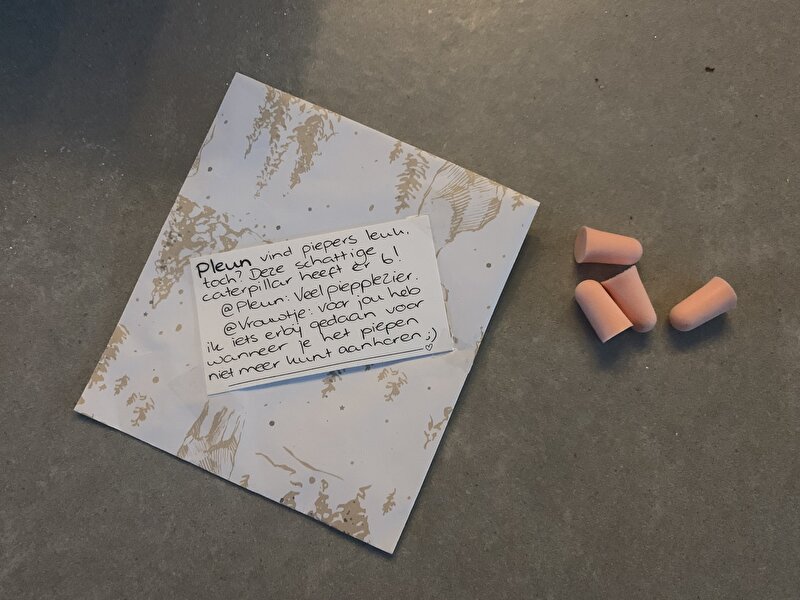 Pleun vind piepers leuk.
toch? Deze schattige
caterpillar heeft er 6!
@Pleun: Veel piepplezier.
@Vrouwtje: voor jou heb
ik iets erbij gedaan voor
wanneer je het piepen
niet meer kunt aanhoren ;)